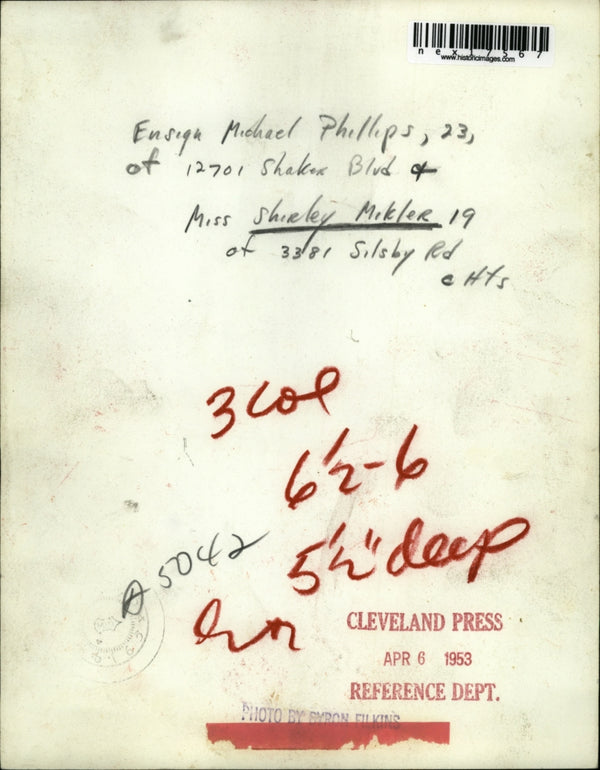 nex17567
www.historicimages.com
Ensign Michael Phillips, 23,
of 12701 Shaker Blvd &
Miss Shirley Mikler 19
of 3381 Silsby Rd
c Hts
3 col
6 1/2 - 6
5 1/2" deep
A5042
CLEVELAND PRESS
APR 6 1953
REFERENCE DEPT.
PHOTO BY BYRON FILKINS